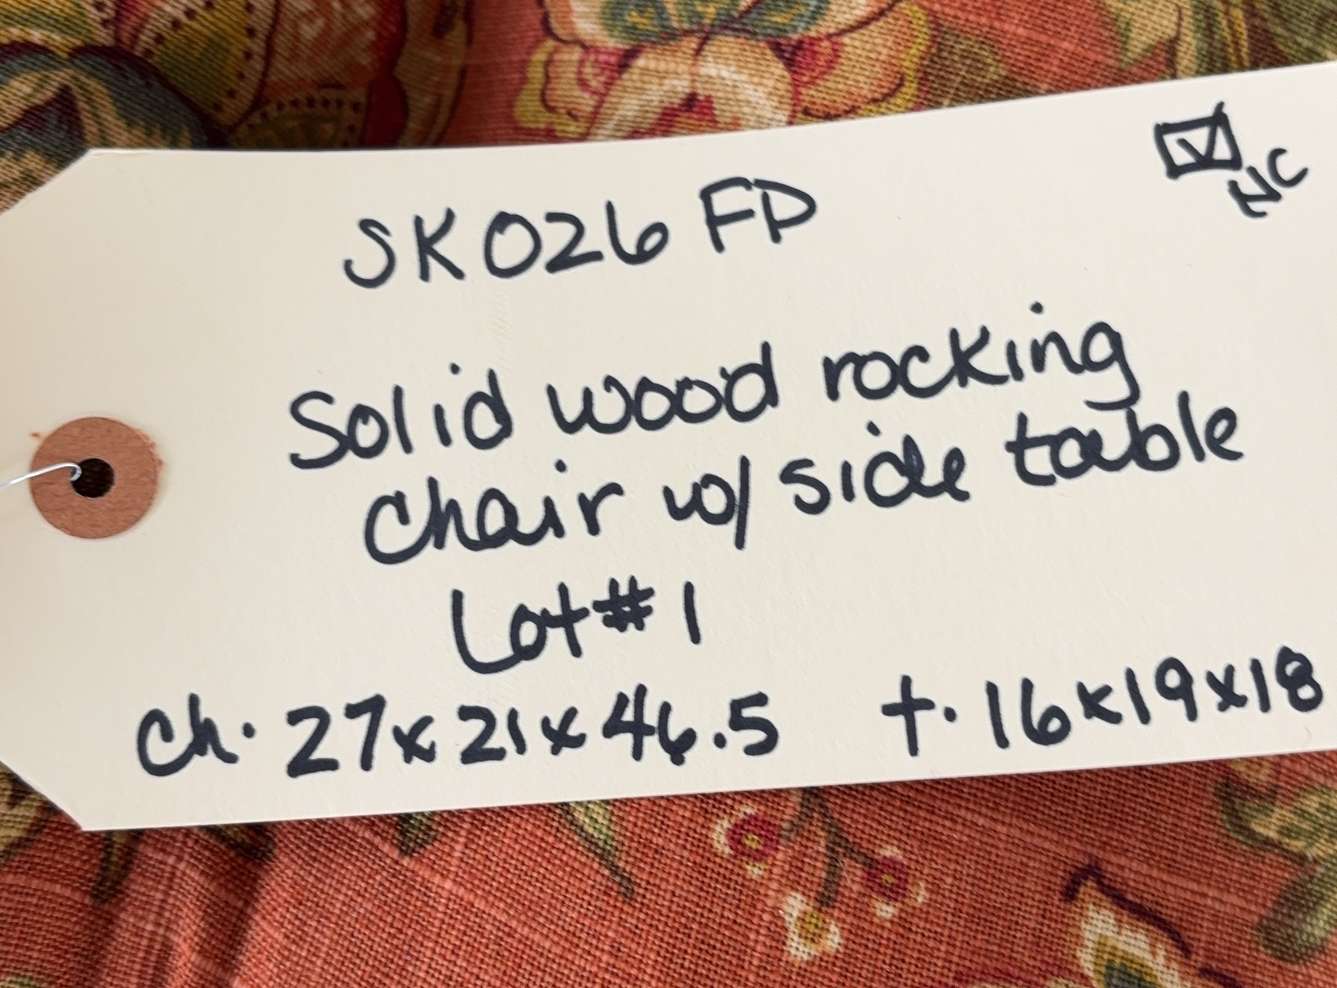 ☑ NC
SK026 FD
Solid wood rocking
chair w/ side table
Lot# 1
Ch. 27x21x46.5 t. 16x19x18